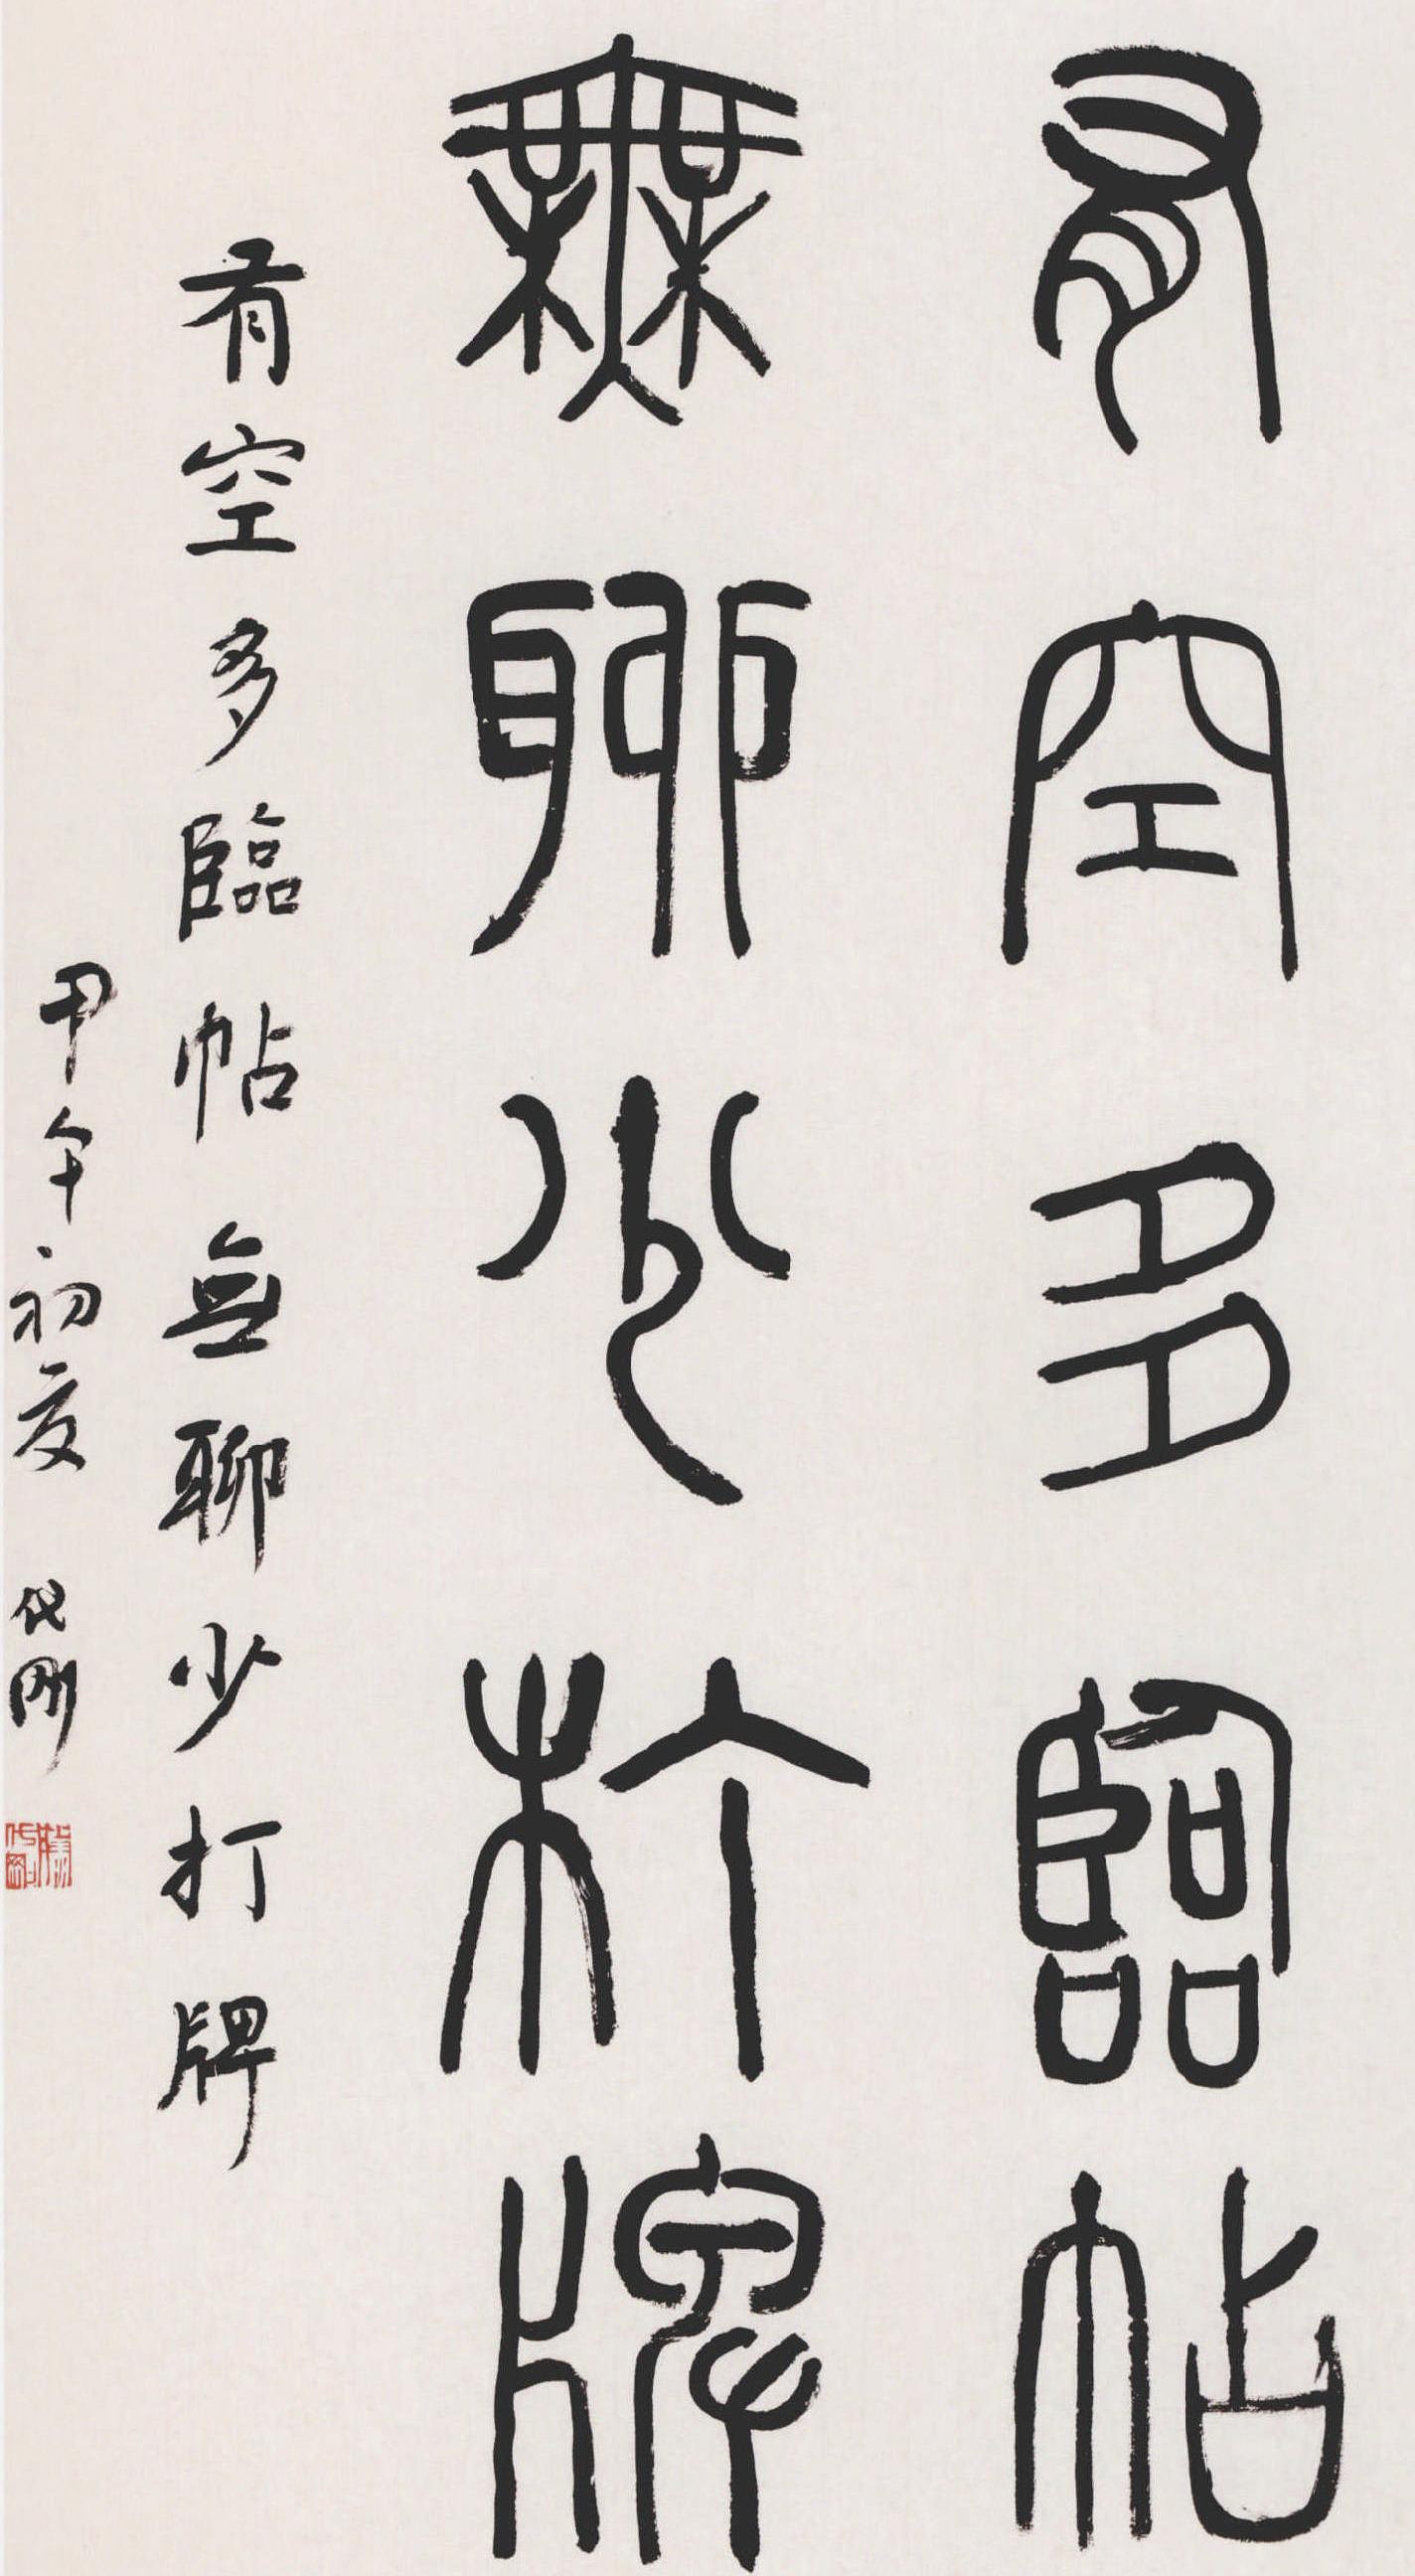 有空多臨帖
無聊少打牌
有空多臨帖無聊少打牌
甲午初夏 代剛